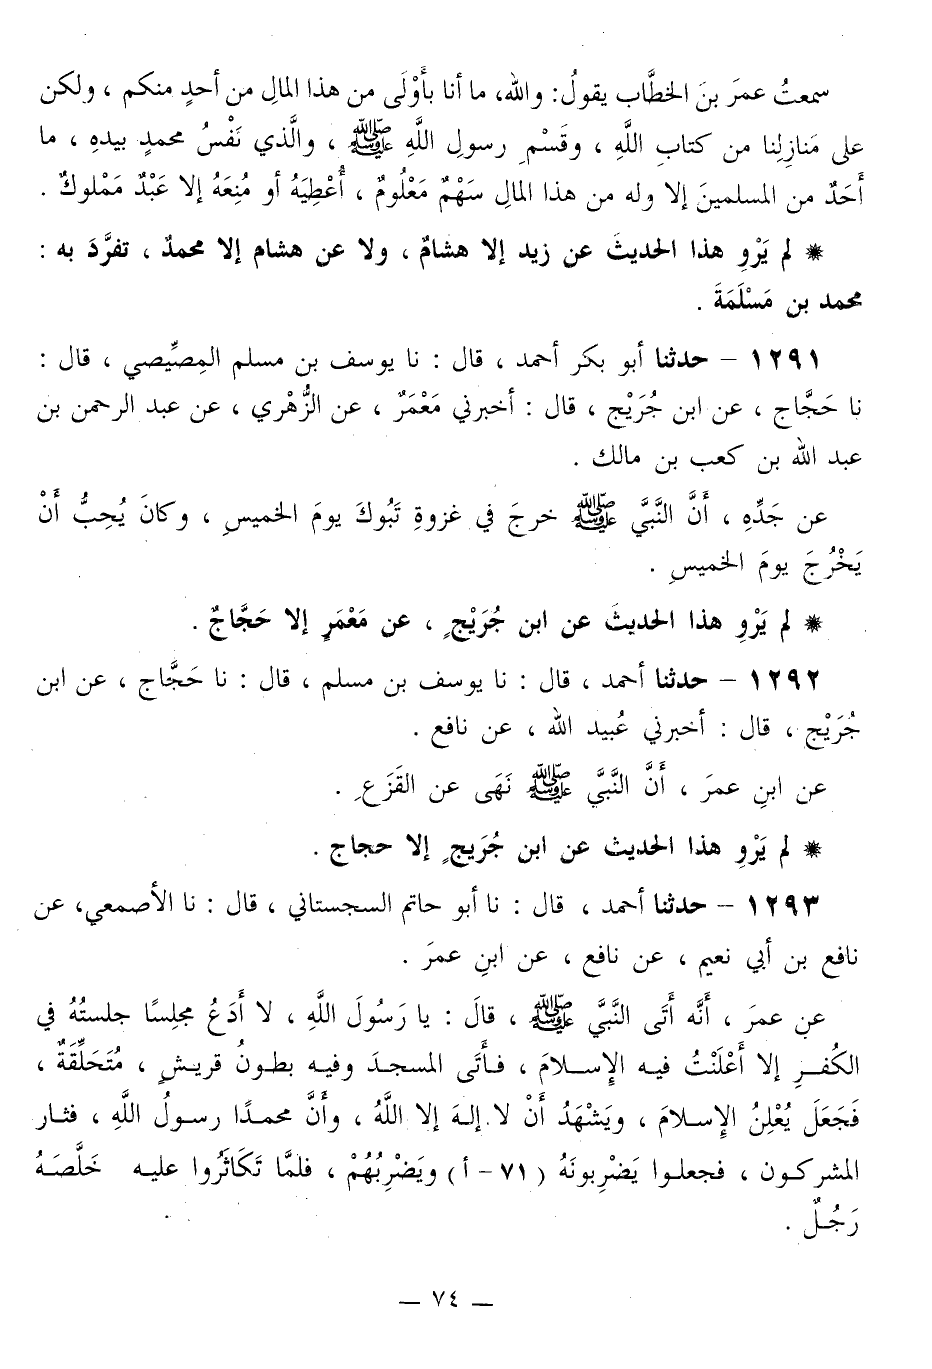 سمعتُ عمرَ بنَ الخطَّاب يقولُ: والله، ما أنا بأَوْلَى من هذا المالِ من أحدٍ منكم ، ولكن
على مَنازِلِنا من كتابِ اللَّهِ ، وقَسْمِ رسولِ اللَّهِ ﷺ ، والَّذي نَفْسُ محمدٍ بيدهِ ، ما
أَحَدٌ من المسلمينَ إلا وله من هذا المالِ سَهْمٌ مَعْلُومٌ ، أُعْطِيَهُ أو مُنِعَهُ إلا عَبْدٌ مَمْلوكٌ .
* لم يَرْوِ هذا الحديثَ عن زيد إلا هشامٌ ، ولا عن هشام إلا محمدٌ ، تفرَّدَ به :
محمد بن مَسْلَمَةَ .
١٢٩١ - حدثنا أبو بكر أحمد ، قال : نا يوسف بن مسلم المِصِّيصي ، قال :
نا حَجَّاج ، عن ابن جُرَيْج ، قال : أخبرني مَعْمَرٌ ، عن الزُّهْري ، عن عبد الرحمن بن
عبد الله بن كعب بن مالك .
عن جَدِّهِ ، أَنَّ النَّبيَّ ﷺ خرجَ في غزوةِ تَبُوكَ يومَ الخميسِ ، وكانَ يُحِبُّ أَنْ
يَخْرُجَ يومَ الخميسِ .
* لم يَرْوِ هذا الحديثَ عن ابن جُرَيْجٍ ، عن مَعْمَرٍ إلا حَجَّاجٌ .
١٢٩٢ - حدثنا أحمد ، قال : نا يوسف بن مسلم ، قال : نا حَجَّاج ، عن ابن
جُرَيْج ، قال : أخبرني عُبيد الله ، عن نافع .
عن ابنِ عمرَ ، أَنَّ النَّبيَّ ﷺ نَهَى عن القَزَعِ .
* لم يَرْوِ هذا الحديث عن ابن جُرَيجٍ إلا حجاج .
١٢٩٣ - حدثنا أحمد ، قال : نا أبو حاتم السجستاني ، قال : نا الأصمعي، عن
نافع بن أبي نعيم ، عن نافع ، عن ابنِ عمرَ .
عن عمرَ ، أَنَّه أَتَى النَّبيَّ ﷺ ، قالَ : يا رَسُولَ اللَّهِ ، لا أَدَعُ مجلِسًا جلستُهُ في
الكُفرِ إلا أَعْلَنْتُ فيه الإِسلامَ ، فأَتَى المسجدَ وفيه بطونُ قريشٍ ، مُتَحَلِّقَةٌ ،
فَجَعَلَ يُعْلِنُ الإِسلامَ ، ويَشْهَدُ أَنْ لا إلهَ إلا اللَّهُ ، وأَنَّ محمدًا رسولُ اللَّهِ ، فثار
المشركون ، فجعلوا يَضْرِبونَهُ ( ٧١ - أ ) ويَضْرِبُهُمْ ، فلمَّا تَكَاثَرُوا عليه خَلَّصَهُ
رَجُلٌ .
— ٧٤ —